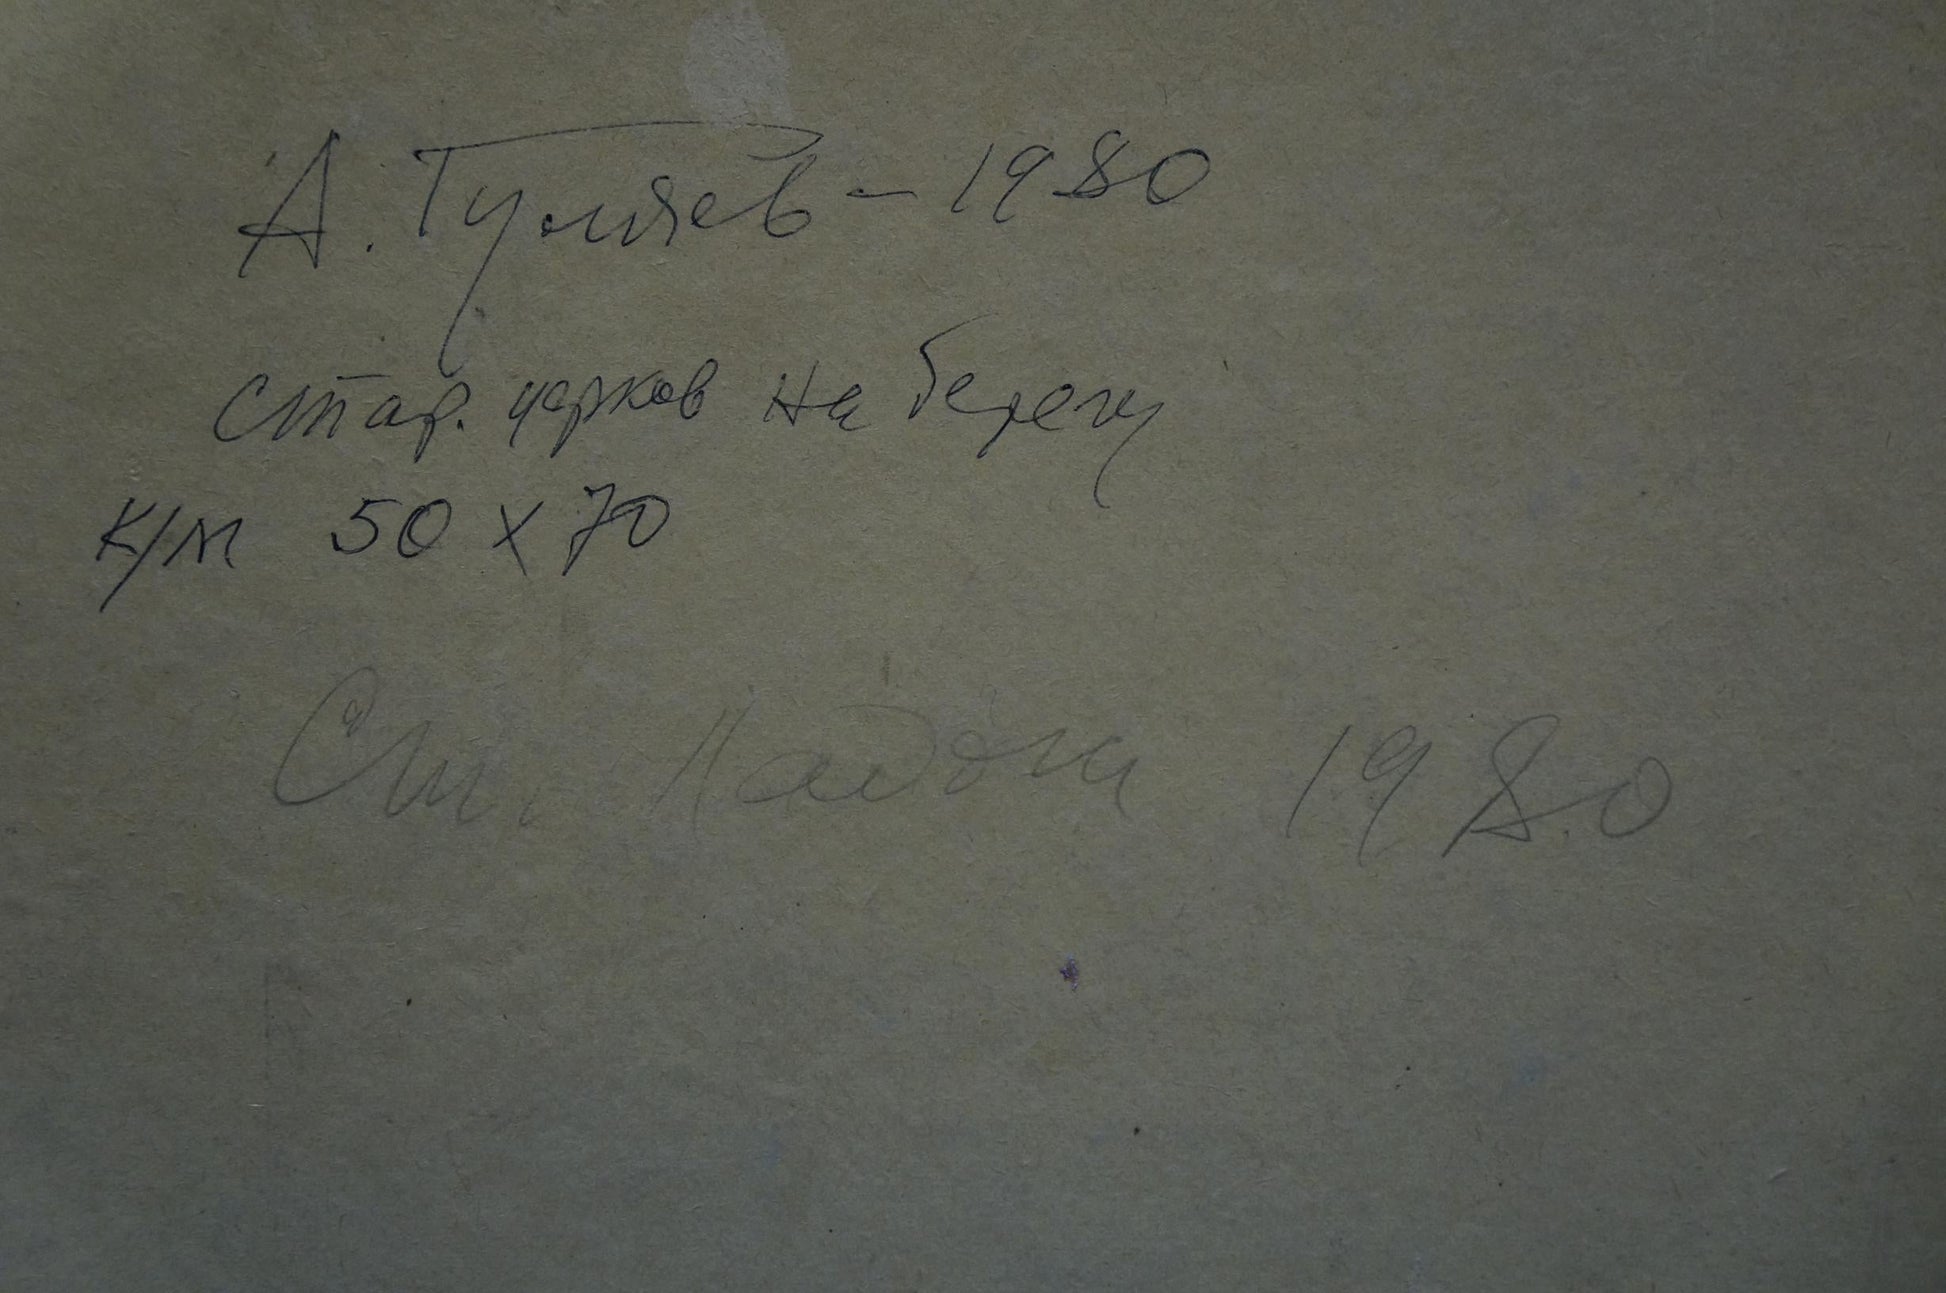 А. Гуляев - 1980
стар. церков на берегу
К/м 50 х 70
Ст. Ладога 1980